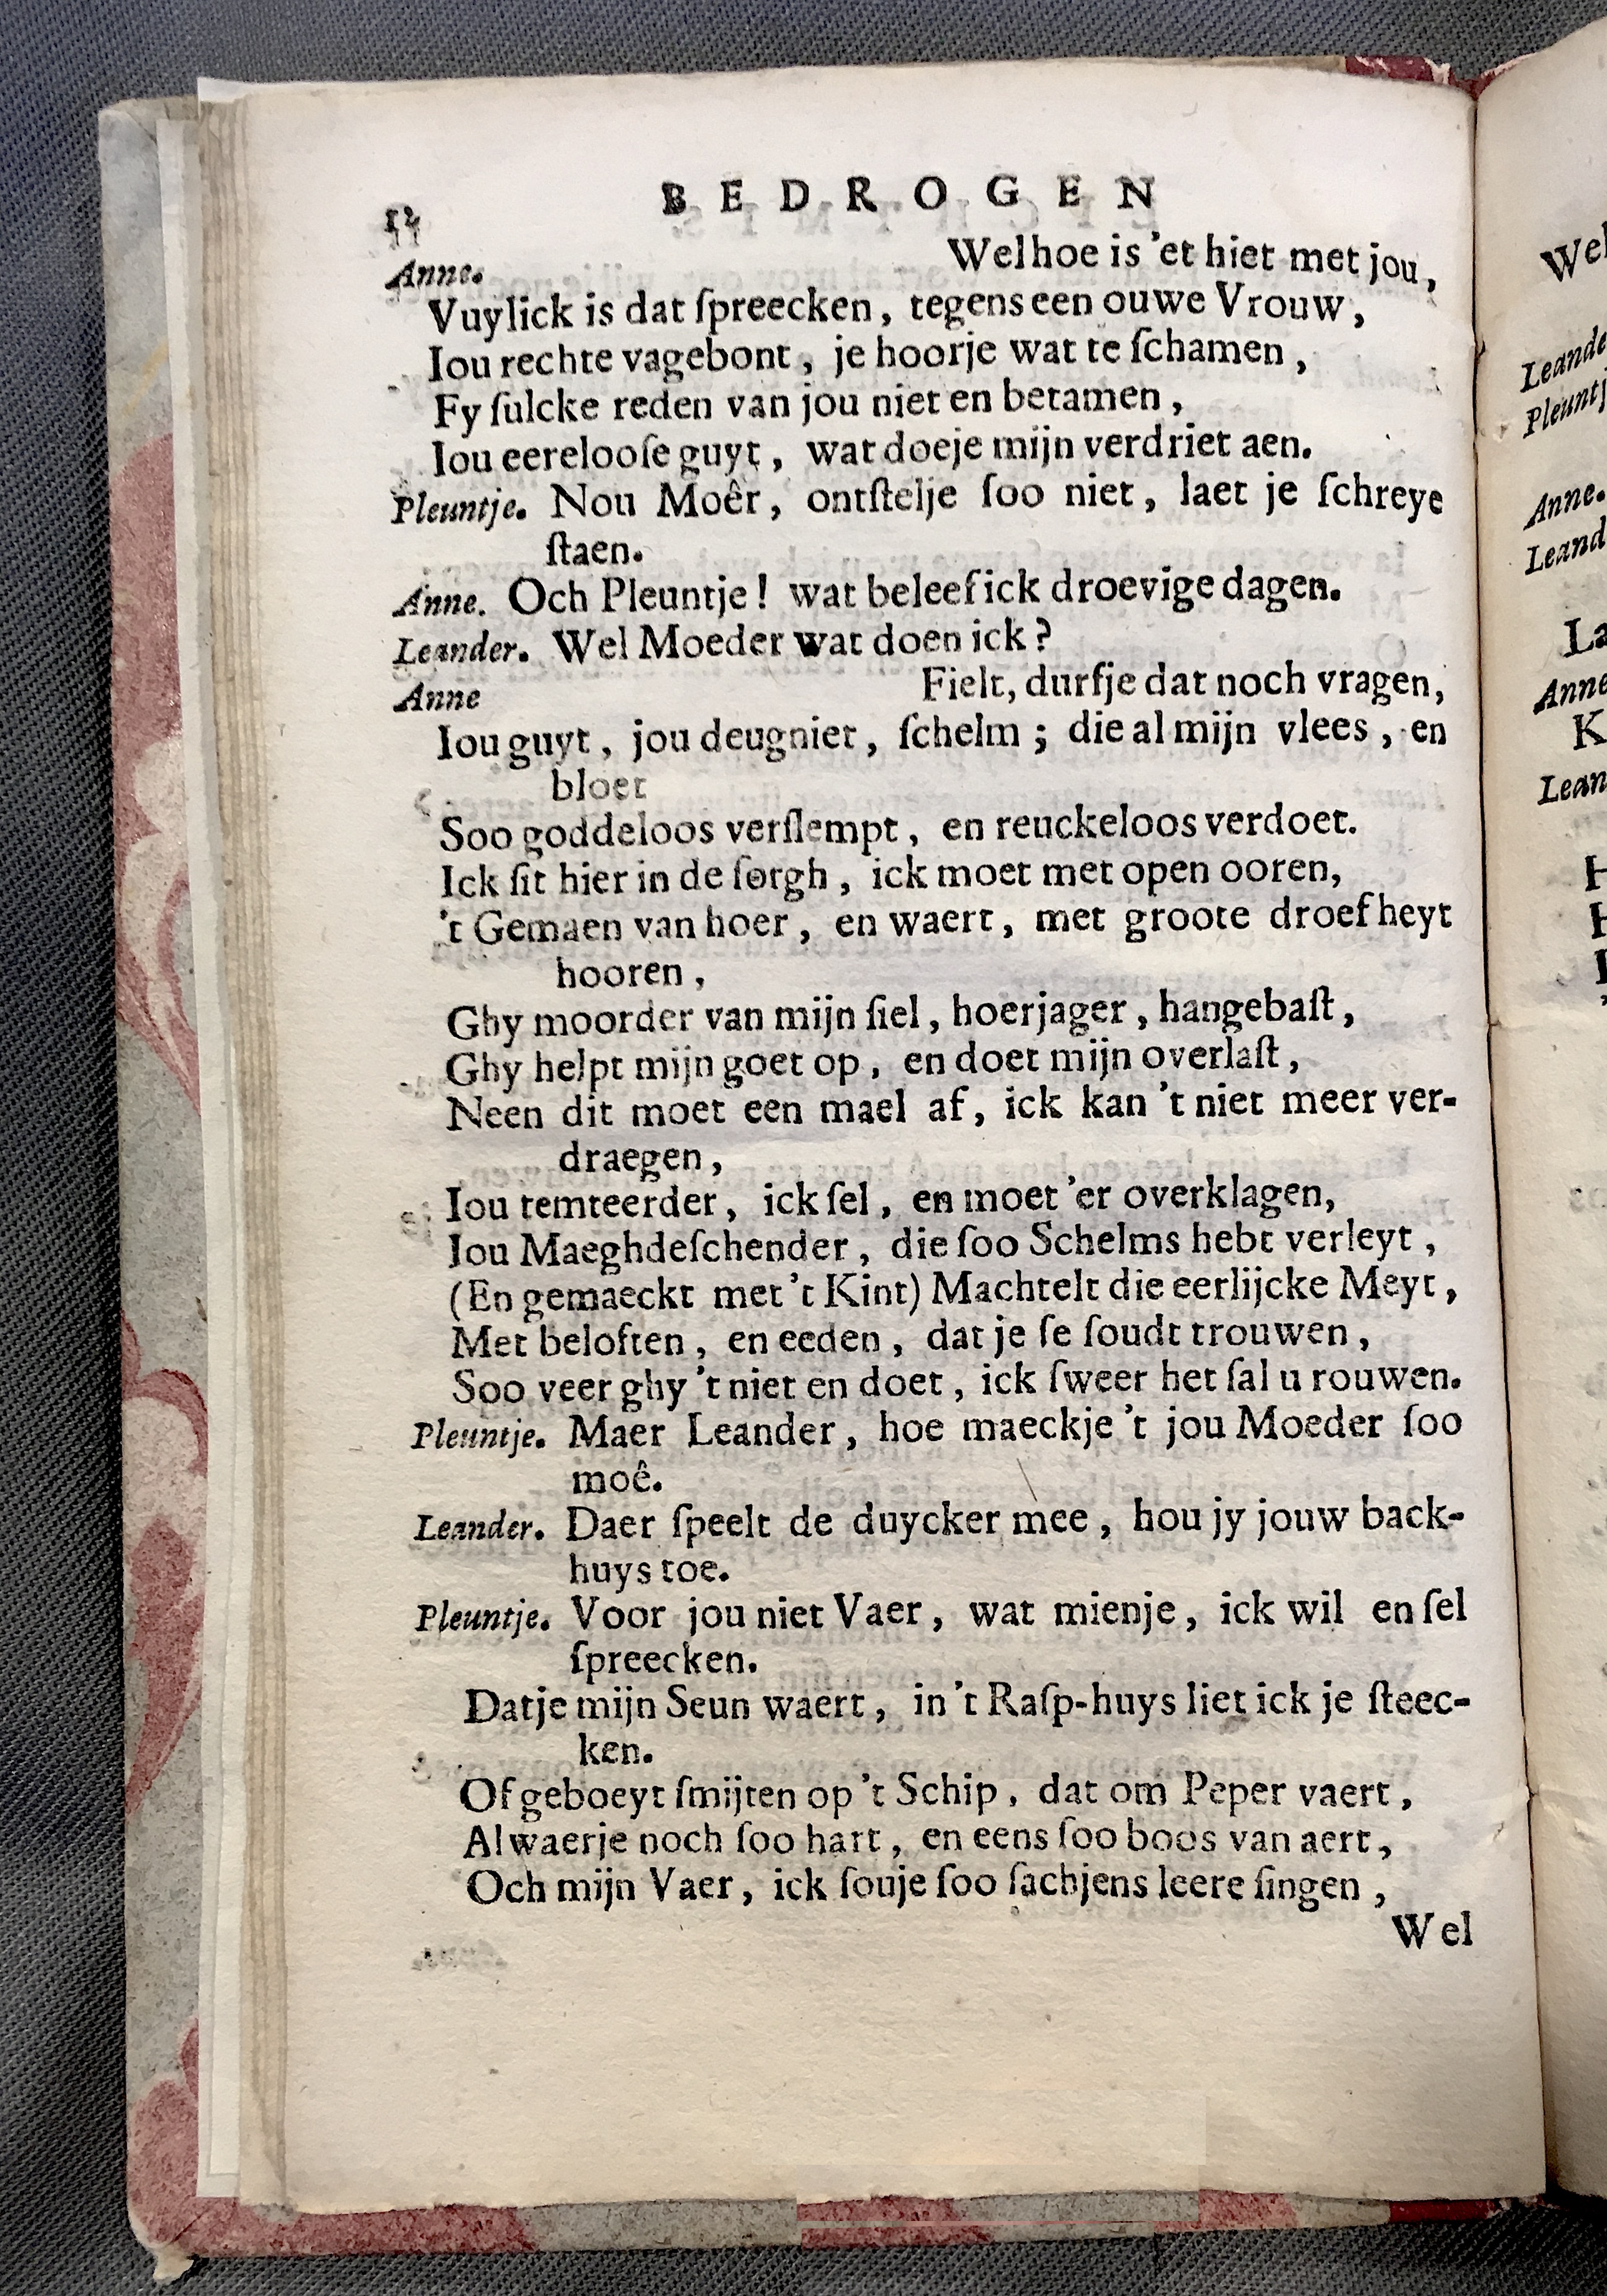 12 BEDROGEN
Anne. Wel hoe is 'et hier met jou,
Vuylick is dat ſpreecken, tegens een ouwe Vrouw,
Iou rechte vagebont, je hoorje wat te ſchamen,
Fy ſulcke reden van jou niet en betamen,
Iou eerelooſe guyt, wat doeje mijn verdriet aen.
Pleuntje. Nou Moêr, ontſtelje ſoo niet, laet je ſchreye
ſtaen.
Anne. Och Pleuntje! wat beleef ick droevige dagen.
Leander. Wel Moeder wat doen ick?
Anne Fielt, durfje dat noch vragen,
Iou guyt, jou deugniet, ſchelm; die al mijn vlees, en
bloet
Soo goddeloos verſlempt, en reuckeloos verdoet.
Ick ſit hier in de ſorgh, ick moet met open ooren,
't Gemaen van hoer, en waert, met groote droef heyt
hooren,
Ghy moorder van mijn ſiel, hoerjager, hangebaſt,
Ghy helpt mijn goet op, en doet mijn overlaſt,
Neen dit moet een mael af, ick kan 't niet meer ver-
draegen,
Iou temteerder, ick ſel, en moet 'er over klagen,
Iou Maeghdeſchender, die ſoo Schelms hebt verleyt,
(En gemaeckt met 't Kint) Machtelt die eerlijcke Meyt,
Met beloften, en eeden, dat je ſe ſoudt trouwen,
Soo veer ghy 't niet en doet, ick ſweer het ſal u rouwen.
Pleuntje. Maer Leander, hoe maeckje 't jou Moeder ſoo
moê.
Leander. Daer ſpeelt de duycker mee, hou jy jouw back-
huys toe.
Pleuntje. Voor jou niet Vaer, wat mienje, ick wil en ſel
ſpreecken.
Datje mijn Seun waert, in 't Raſp-huys liet ick je ſteec-
ken.
Of geboeyt ſmijten op 't Schip, dat om Peper vaert,
Al waerje noch ſoo hart, en eens ſoo boos van aert,
Och mijn Vaer, ick ſouje ſoo ſachjens leere ſingen,
Wel
Wel
Anne.
La
Anne
K
H
H